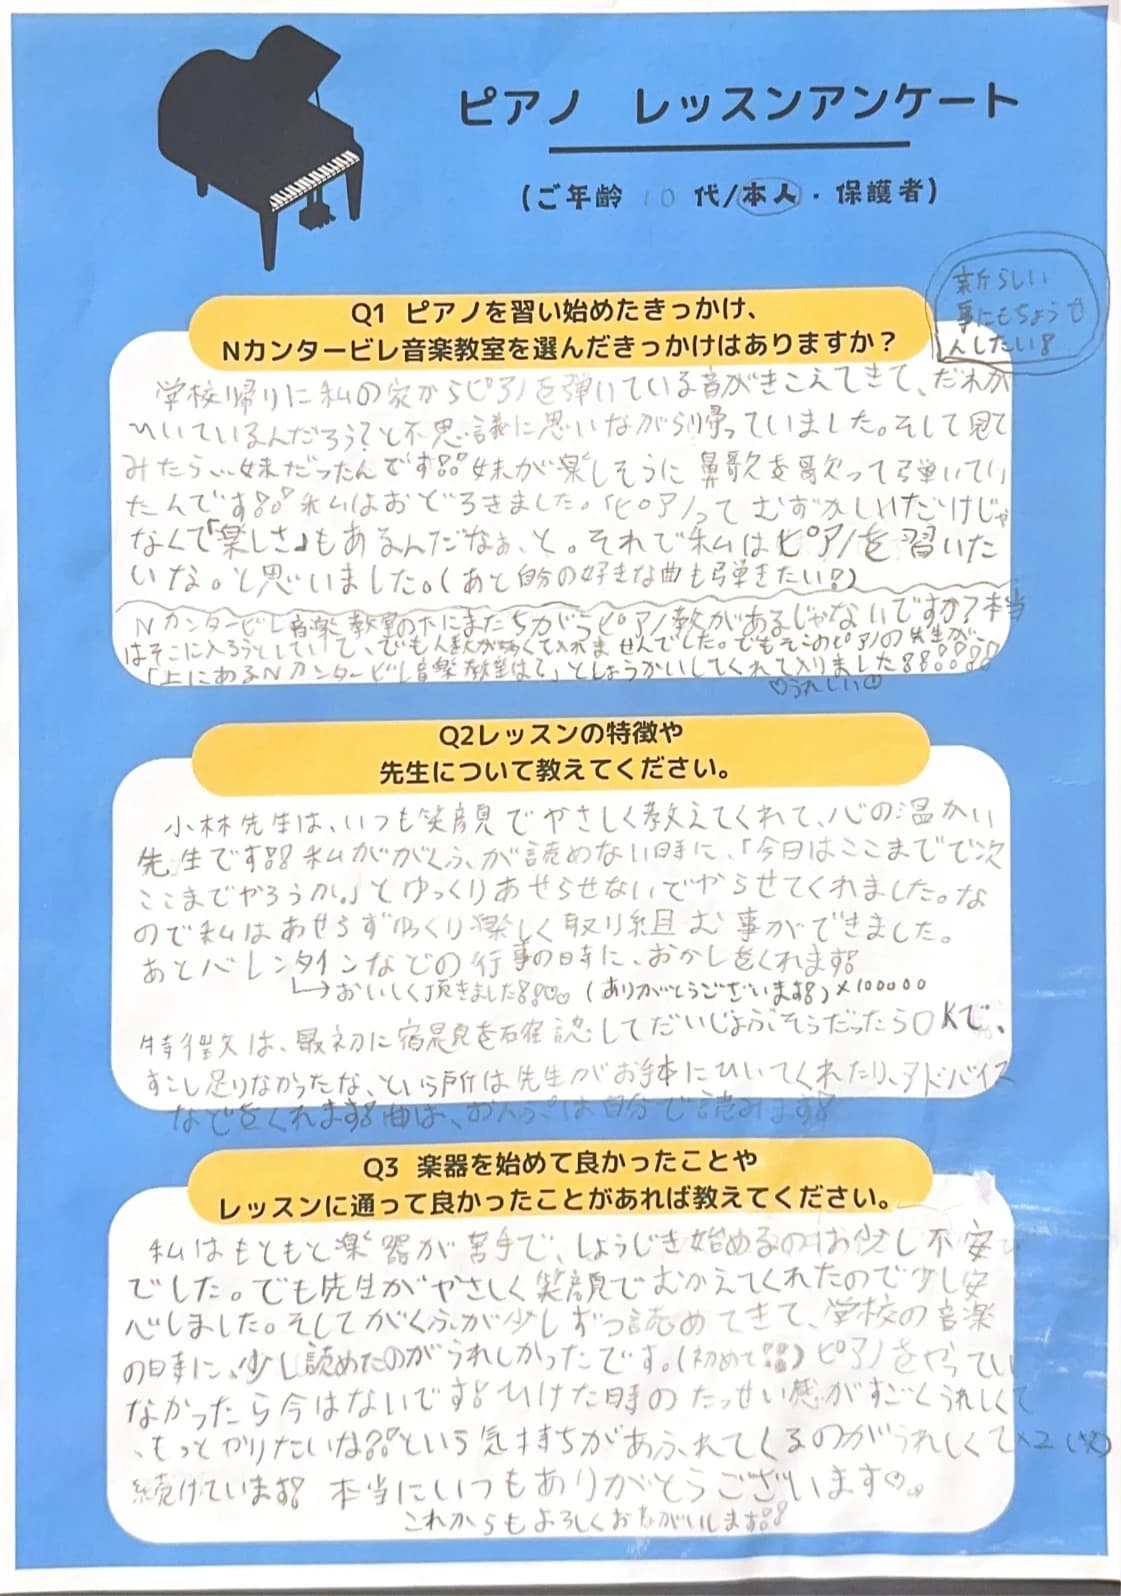 ピアノ　レッスンアンケート
(ご年齢 10 代/本人・保護者)
新らしい
事にもちょうせ
んしたい!
Q1 ピアノを習い始めたきっかけ、
Nカンタービレ音楽教室を選んだきっかけはありますか？
学校帰りに私の家からピアノを弾いている音がきこえてきて、だれが
ひいているんだろう?と不思議に思いながら帰っていました。そして見て
みたら…妹だったんです!!妹が楽しそうに鼻歌を歌って弾いてい
たんです!!私はおどろきました。「ピアノってむずかしいだけじゃ
なくて「楽しさ」もあるんだなぁ、と。それで私はピアノを習いた
いな。と思いました。(あと自分の好きな曲も弾きたい!)
Nカンタービレ音楽教室の下にまたちがうピアノ教があるじゃないですか?本当
はそこに入ろうとしていて、でも人数が多くて入れませんでした。でもそこのピアノの先生が
「上にあるNカンタービレ音楽教室は?」としょうかいしてくれて入りました!!!!!!
♡うれしい☺
Q2レッスンの特徴や
先生について教えてください。
小林先生は、いつも笑顔でやさしく教えてくれて、心の温かい
先生です!!私ががくふが読めない時に、「今日はここまでで次
ここまでやろうか。」とゆっくりあせらせないでやらせてくれました。な
ので私はあせらずゆっくり楽しく取り組む事ができました。
あとバレンタインなどの行事の時に、おかしをくれます!
↳おいしく頂きました!!♡♡ (ありがとうございます!)×100000
特徴は、最初に宿題を確認してだいじょうぶそうだったらOKで、
すこし足りなかったな、という所は先生がお手本にひいてくれたり、アドバイス
などをくれます!曲は、おんぷは自分で読みます!
Q3 楽器を始めて良かったことや
レッスンに通って良かったことがあれば教えてください。
私はもともと楽器が苦手で、しょうじき始めるのは少し不安
でした。でも先生がやさしく笑顔でむかえてくれたので少し安
心しました。そしてがくふが少しずつ読めてきて、学校の音楽
の時に、少し読めたのがうれしかったです。(初めて!!)ピアノをやってい
なかったら今はないです!ひけた時のたっせい感がすごくうれしくて
、もっとやりたいな!!という気持ちがあふれてくるのがうれしくて×2(笑)
続けています! 本当にいつもありがとうございます♡。
これからもよろしくおねがいします!!